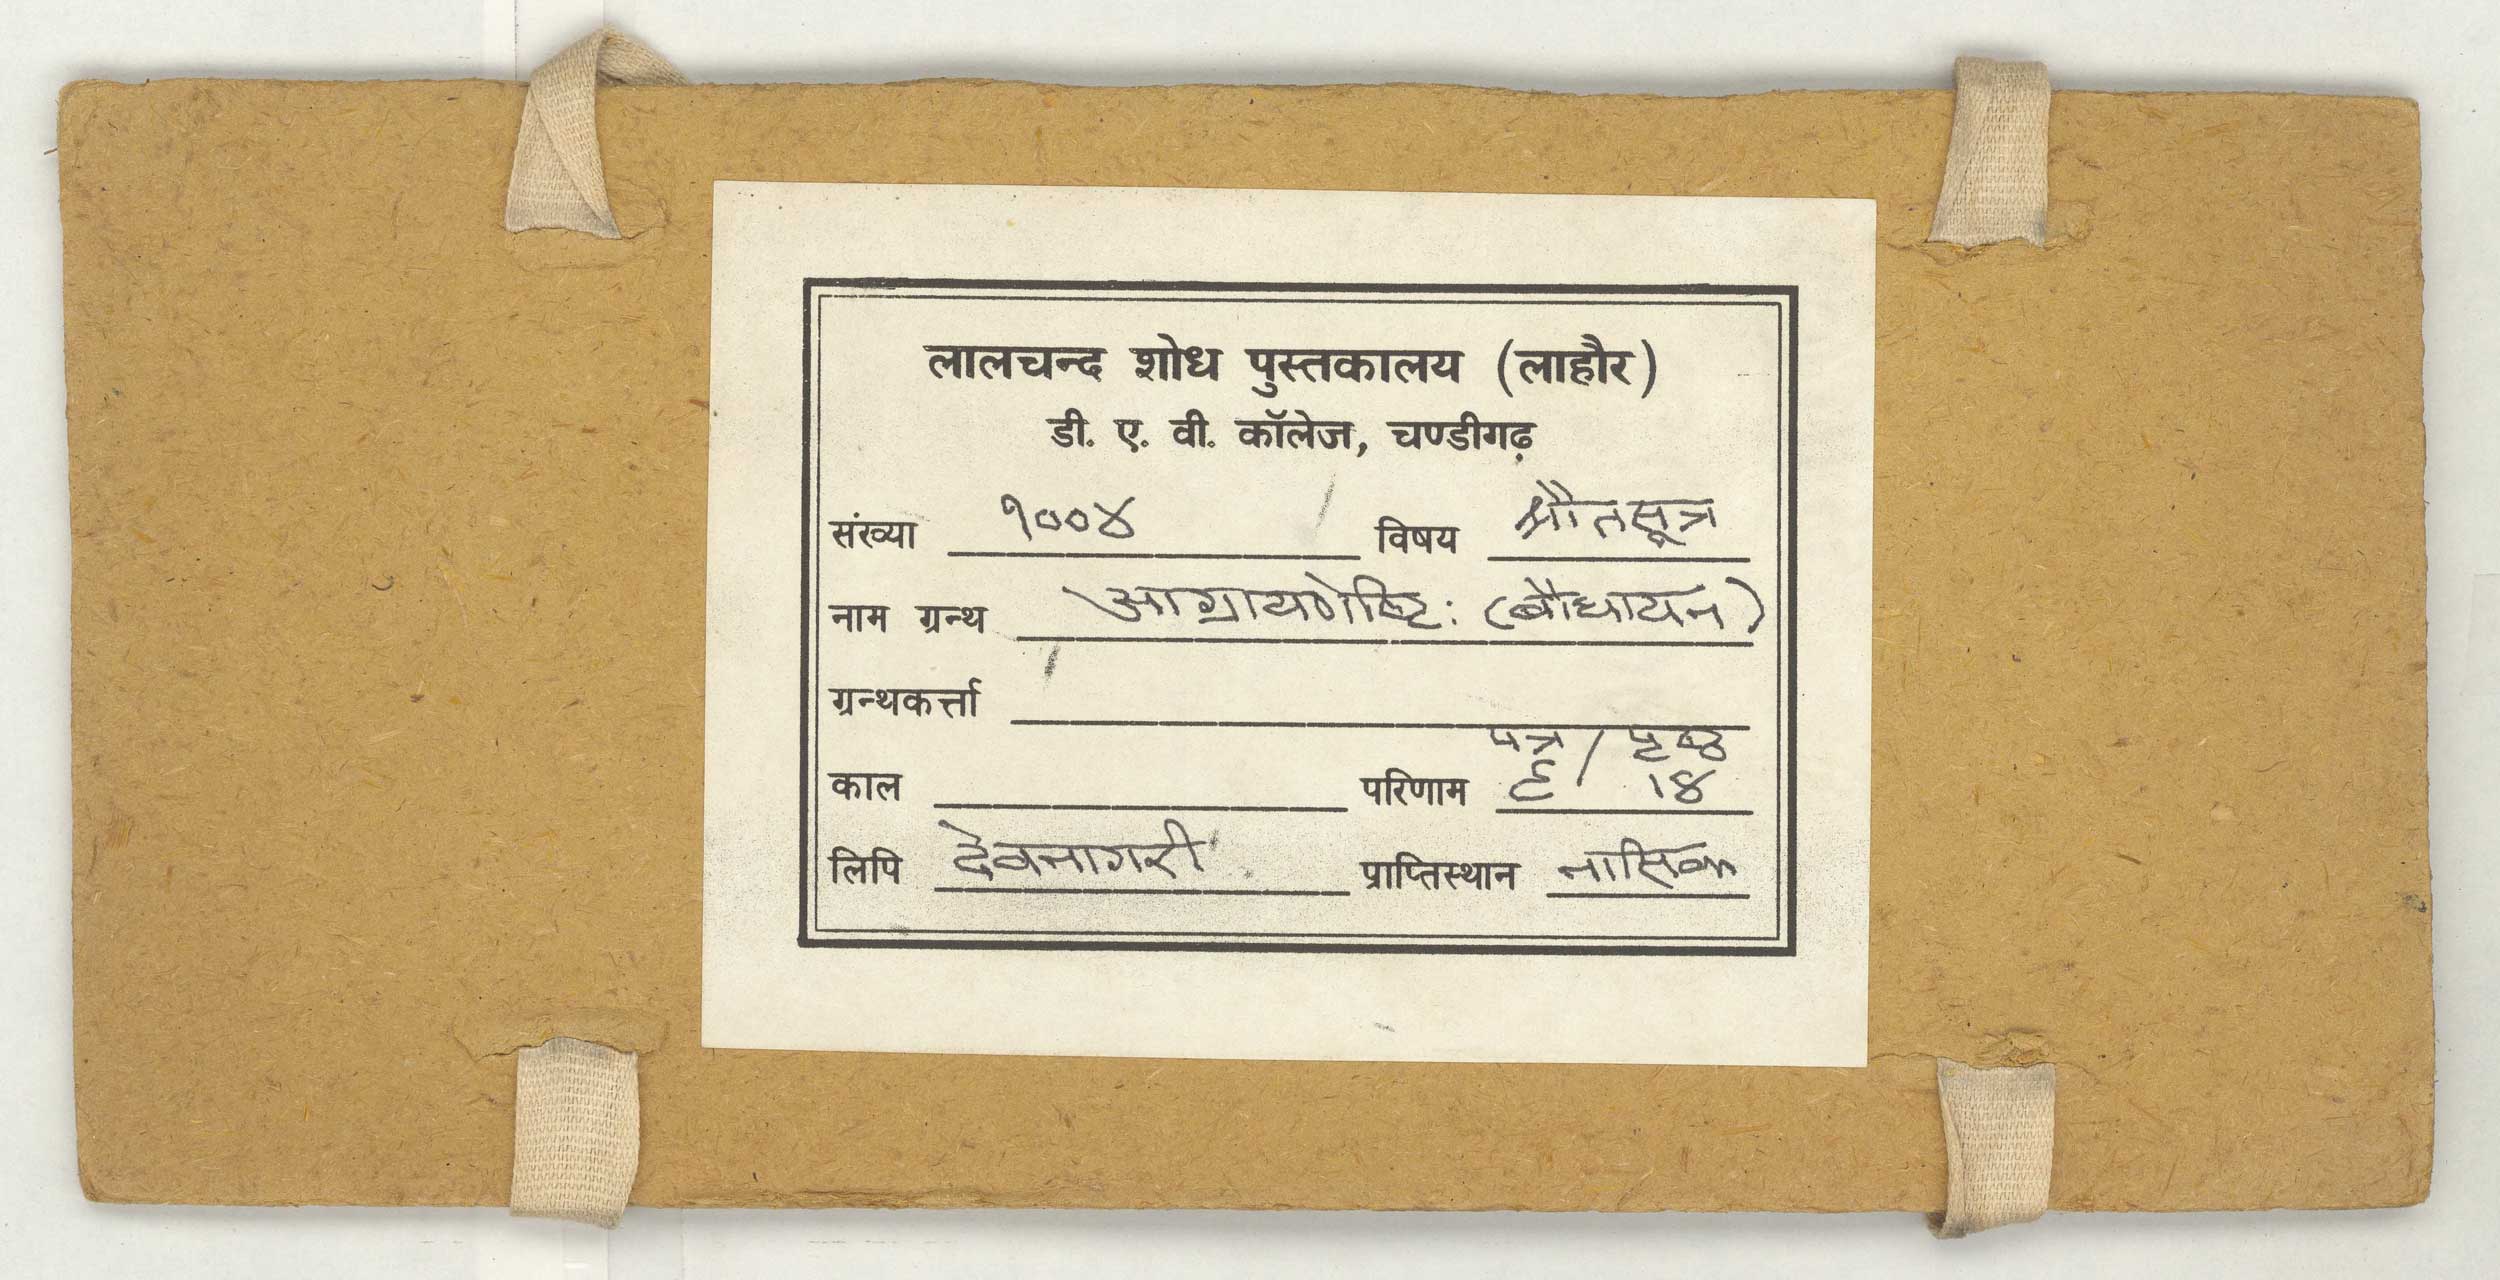 लालचन्द शोध पुस्तकालय (लाहौर)
डी. ए. वी. कॉलेज, चण्डीगढ़
संख्या १००४ विषय श्रौतसूत्र
नाम ग्रन्थ आग्रायणेष्टि: (बौधायन)
ग्रन्थकर्त्ता
पत्र / पृष्ठ
काल परिणाम ९ / १४
लिपि देवनागरी प्राप्तिस्थान नासिक